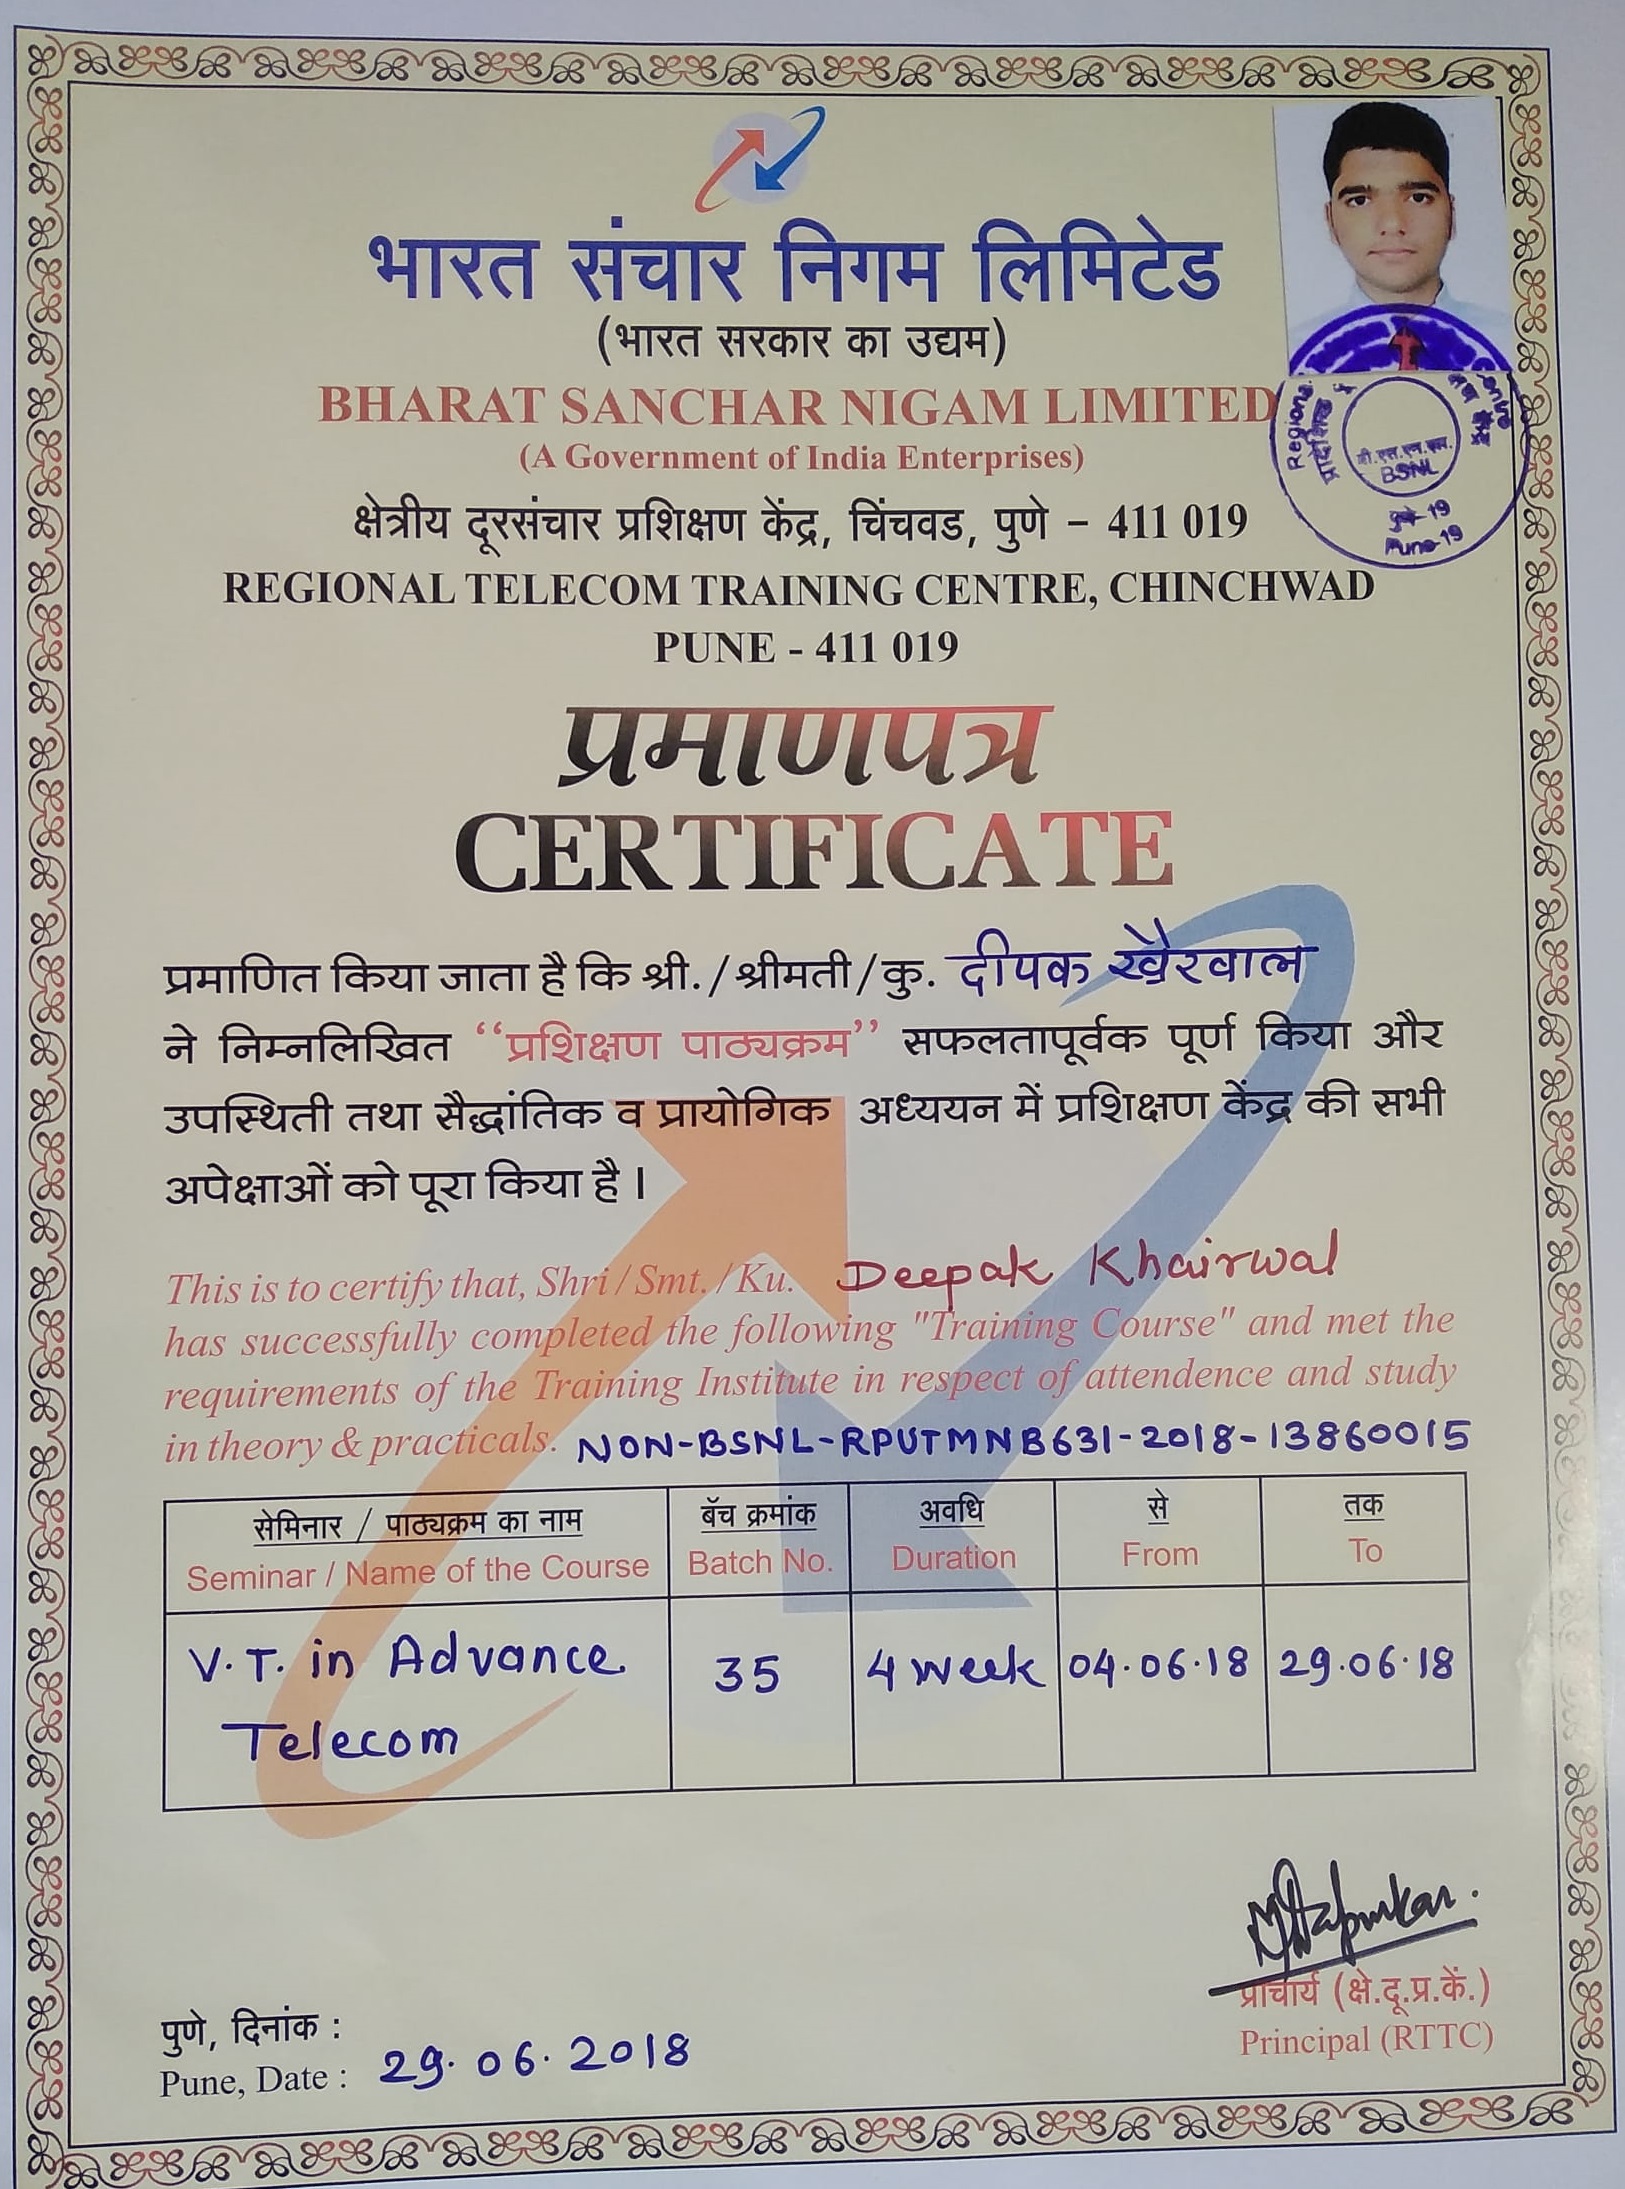 भारत संचार निगम लिमिटेड
(भारत सरकार का उद्यम)
BHARAT SANCHAR NIGAM LIMITED
(A Government of India Enterprises)
क्षेत्रीय दूरसंचार प्रशिक्षण केंद्र, चिंचवड, पुणे – 411 019
REGIONAL TELECOM TRAINING CENTRE, CHINCHWAD
PUNE - 411 019
Regional
Centre
बी.एस.एन.एल.
BSNL
पुणे-19
Pune-19
प्रमाणपत्र
CERTIFICATE
प्रमाणित किया जाता है कि श्री./श्रीमती/कु. दीपक खैरवाल
ने निम्नलिखित “प्रशिक्षण पाठ्यक्रम” सफलतापूर्वक पूर्ण किया और
उपस्थिती तथा सैद्धांतिक व प्रायोगिक अध्ययन में प्रशिक्षण केंद्र की सभी
अपेक्षाओं को पूरा किया है ।
This is to certify that, Shri / Smt. / Ku. Deepak Khairwal
has successfully completed the following "Training Course" and met the
requirements of the Training Institute in respect of attendence and study
in theory & practicals. NON-BSNL-RPUTMNB631-2018-13860015
सेमिनार / पाठ्यक्रम का नाम बॅच क्रमांक अवधि से तक
Seminar / Name of the Course Batch No. Duration From To
V.T. in Advance 35 4 week 04.06.18 29.06.18
Telecom
प्राचार्य (क्षे.दू.प्र.कें.)
Principal (RTTC)
पुणे, दिनांक :
Pune, Date : 29.06.2018